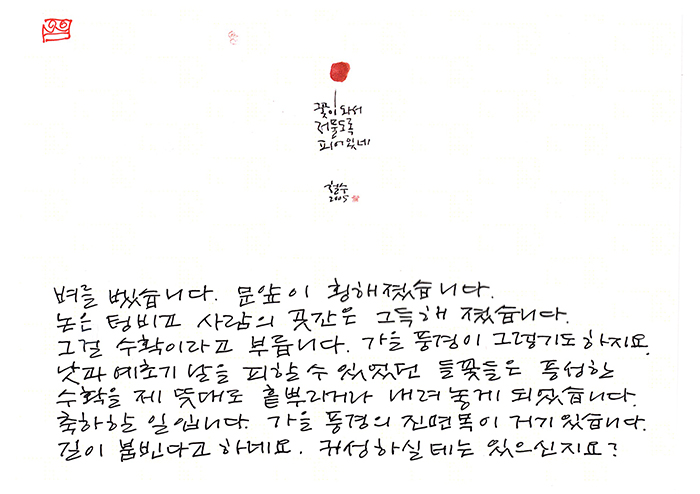 꽃이 와서
저물도록
피어있네
철수
2005
벼를 벴습니다. 문앞이 휑해졌습니다.
논은 텅비고 사람의 곳간은 그득해 졌습니다.
그걸 수확이라고 부릅니다. 가을 풍경이 그렇기도하지요.
낫과 예초기 날을 피할 수 있었던 들꽃들은 풍성한
수확을 제 뜻대로 흩뿌리거나 내려 놓게 되었습니다.
축하할 일입니다. 가을 풍경의 진면목이 거기 있습니다.
길이 붐빈다고 하네요. 귀성하실 테는 있으신지요?